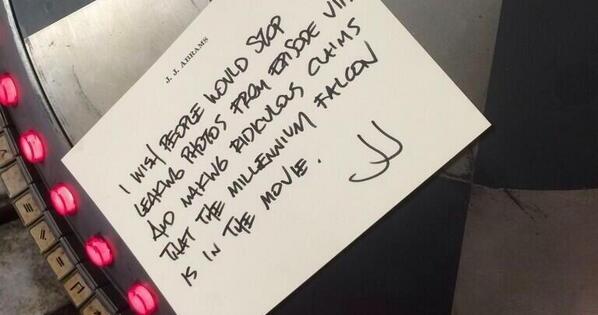 J. J. ABRAMS
I WISH PEOPLE WOULD STOP
LEAKING PHOTOS FROM EPISODE VII
AND MAKING RIDICULOUS CLAIMS
THAT THE MILLENNIUM FALCON
IS IN THE MOVIE.
JJ